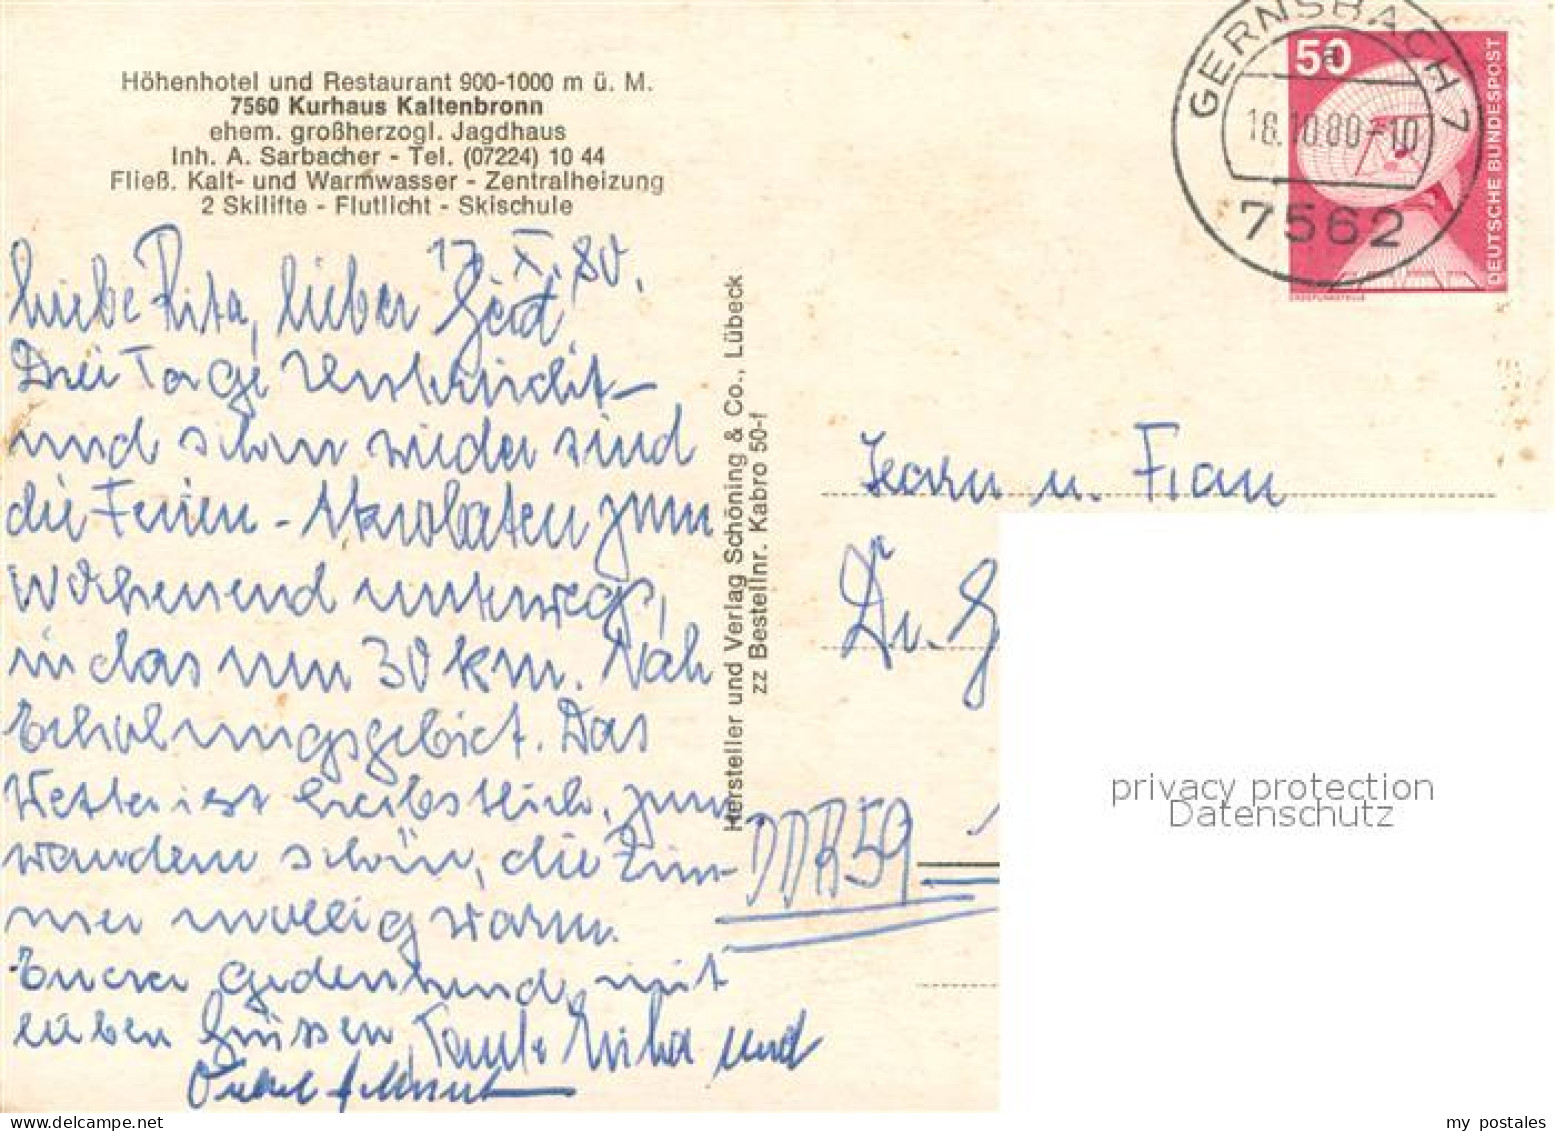 Höhenhotel und Restaurant 900-1000 m ü. M.
7560 Kurhaus Kaltenbronn
ehem. großherzogl. Jagdhaus
Inh. A. Sarbacher - Tel. (07224) 10 44
Fließ. Kalt- und Warmwasser - Zentralheizung
2 Skilifte - Flutlicht - Skischule
17. X. 80.
Liebe Rita, lieber Gerd,
Drei Tage Unterricht
und schon wieder sind
die Ferien - Akrobaten zum
Wochenend unterwegs,
in das nur 30 km. Nah
Erholungsgebiet. Das
Wetter ist herbstlich, zum
wandern schön, die Zim-
mer mollig warm.
Eurer gedenkend, mit
lieben Grüssen, Tante und
Onkel
Hersteller und Verlag Schöning & Co., Lübeck
zz Bestellnr. Kabro 50-f
GERNSBACH 7
a
16.10.80-10
7562
50
DEUTSCHE BUNDESPOST
ERDEFUNKSTELLE
Herrn u. Frau
Dr. G
DDR 59
privacy protection
Datenschutz
www.delcampe.net
my_postales